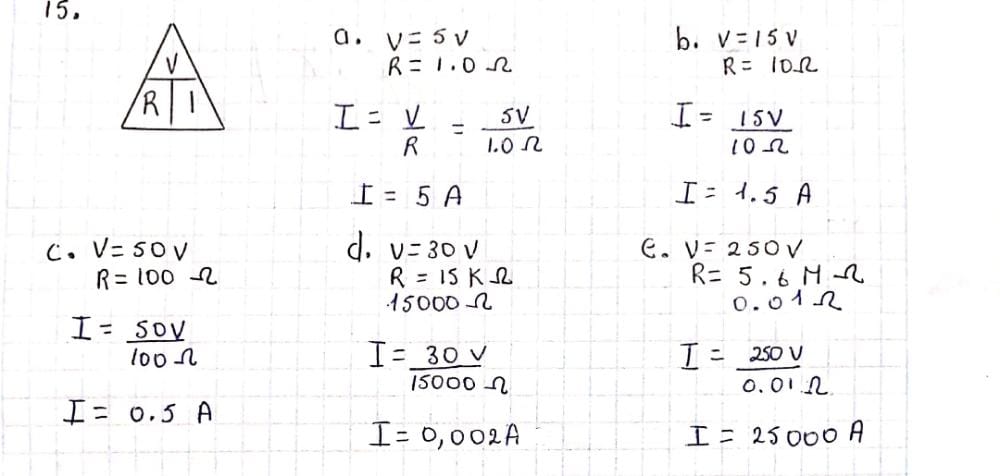 15.
V
R I
a. V = 5 V
R = 1.0 Ω
I = V/R = 5V/1.0 Ω
I = 5 A
b. V = 15 V
R = 10Ω
I = 15V/10 Ω
I = 1.5 A
c. V = 50 V
R = 100 Ω
I = 50V/100 Ω
I = 0.5 A
d. V = 30 V
R = 15 K Ω
15000 Ω
I = 30 V/15000 Ω
I = 0,002A
e. V = 250 V
R = 5.6 M Ω
0.01 Ω
I = 250 V/0.01 Ω
I = 25000 A